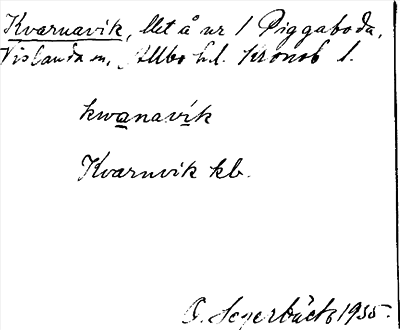 Kvarnavik, llet å nr 1 Piggaboda,
Vislanda sn, Allbo hd. Kronob l.
kwanavík
Kvarnvik kb.
O. Segerbäck 1935.